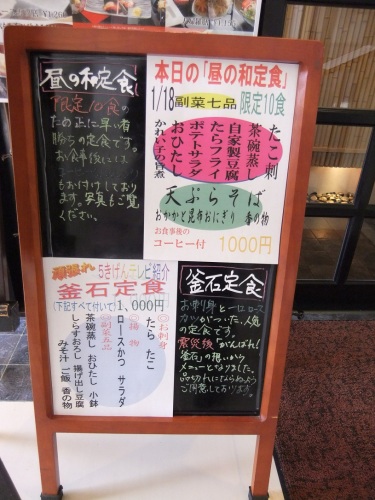 昼の和定食
限定10食の
ため正に早い者
勝ちの定食です。
お食事後には
コーヒー
もお付けしており
ます。写真もご覧
ください。
本日の「昼の和定食」
1/18 副菜七品 限定10食
たこ刺
茶碗蒸し
自家製豆腐
たらフライ
ポテトサラダ
おひたし
かれい子の旨煮
天ぷらそば
おかかと昆布おにぎり 香の物
お食事後の
コーヒー付 1000円
5きげんテレビ紹介
釜石定食
(下記すべて付いて) 1,000円
◎お刺身
たら たこ
揚物
ロースかつ サラダ
◎副菜五品
茶碗蒸し おひたし 小鉢
しらすおろし 揚げ出し豆腐
みそ汁 ご飯 香の物
釜石定食
お刺身と一口ロース
かつがついた、人気
の定食です。
震災後「がんばれ!
釜石」の想いから
メニューとなりました。
品切れにならぬよう
ご用意しております。